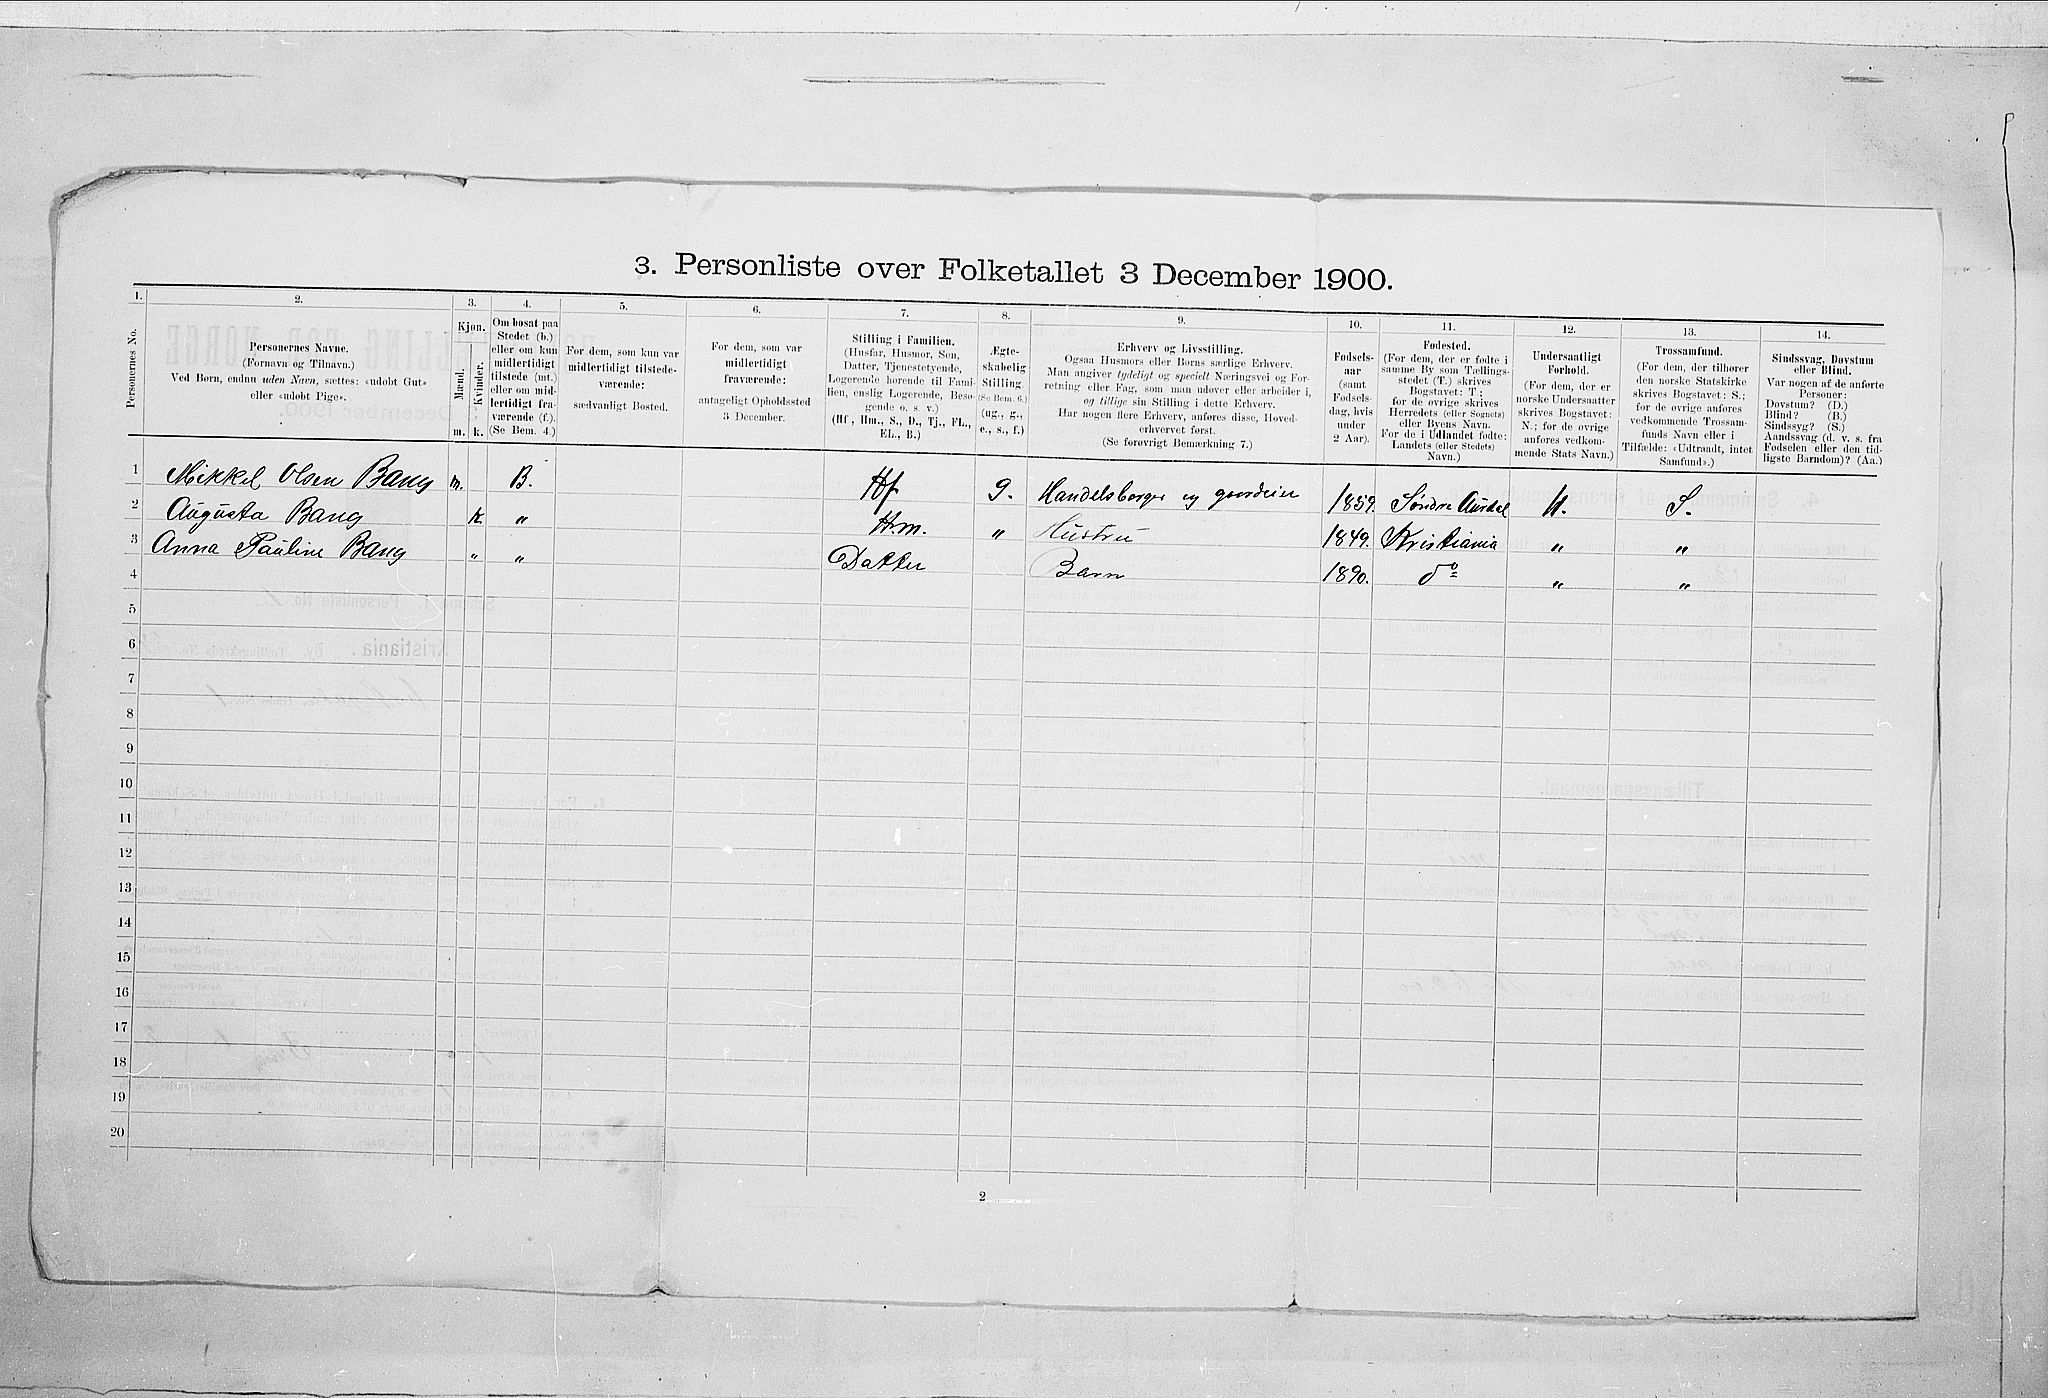 3. Personliste over Folketallet 3 December 1900.
1.
2.
3.
4.
5.
6.
7.
8.
9.
10.
11.
12.
13.
14.
Personernes No.
Personernes Navne.
(Fornavn og Tilnavn.)
Ved Børn, endnu uden Navn, sættes: «udøbt Gut»
eller «udøbt Pige».
Kjøn.
Mænd.
Kvinder.
m.
k.
Om bosat paa
Stedet (b.)
eller om kun
midlertidigt
tilstede (mt.)
eller om mid-
lertidigt fra-
værende (f.).
(Se Bem. 4.)
For dem, som kun var
midlertidigt tilstede-
værende:
sædvanligt Bosted.
For dem, som var
midlertidigt
fraværende:
antageligt Opholdssted
3 December.
Stilling i Familien.
(Husfar, Husmor, Søn,
Datter, Tjenestetyende,
Logerende hørende til Fami-
lien, enslig Logerende, Besø-
gende o. s. v.)
(Hf., Hm., S., D., Tj., FL.,
EL., B.)
Ægte-
skabelig
Stilling.
(Se Bem. 6.)
(ug., g.,
e., s., f.)
Erhverv og Livsstilling.
Ogsaa Husmors eller Børns særlige Erhverv.
Man angiver tydeligt og specielt Næringsvei og For-
retning eller Fag, som man udøver eller arbeider i,
og tillige sin Stilling i dette Erhverv.
Har nogen flere Erhverv, anføres disse, Hoved-
erhvervet først.
(Se forøvrigt Bemærkning 7.)
Fødsels-
aar
(samt
Fødsels-
dag, hvis
under
2 Aar).
Fødested.
(For dem, der er fødte i
samme By som Tællings-
stedet (T.) skrives
Bogstavet: T.;
for de øvrige skrives
Herredets (eller Sognets)
eller Byens Navn.
For de i Udlandet fødte:
Landets (eller Stedets)
Navn.)
Undersaatligt
Forhold.
(For dem, der er
norske Undersaatter
skrives Bogstavet:
N.; for de øvrige
anføres vedkom-
mende Stats Navn.)
Trossamfund.
(For dem, der tilhører
den norske Statskirke
skrives Bogstavet: S.;
for de øvrige anføres
vedkommende Trossam-
funds Navn eller i
Tilfælde: «Udtraadt, intet
Samfund».)
Sindssvag, Døvstum
eller Blind.
Var nogen af de anførte
Personer:
Døvstum? (D.)
Blind? (B.)
Sindssyg? (S.)
Aandssvag (d. v. s. fra
Fødselen eller den tid-
ligste Barndom)? (Aa.)
1 Mikkel Olsen Bang m. B. Hf g. Handelsborger og gaardeier 1859. Søndre Aurdal N. S.
2 Augusta Bang k. „ Hm. „ Hustru 1849. Kristiania „ „
3 Anna Pauline Bang „ „ Datter Barn 1890. do „ „
4
5
6
7
8
9
10
11
12
13
14
15
16
17
18
19
20
2